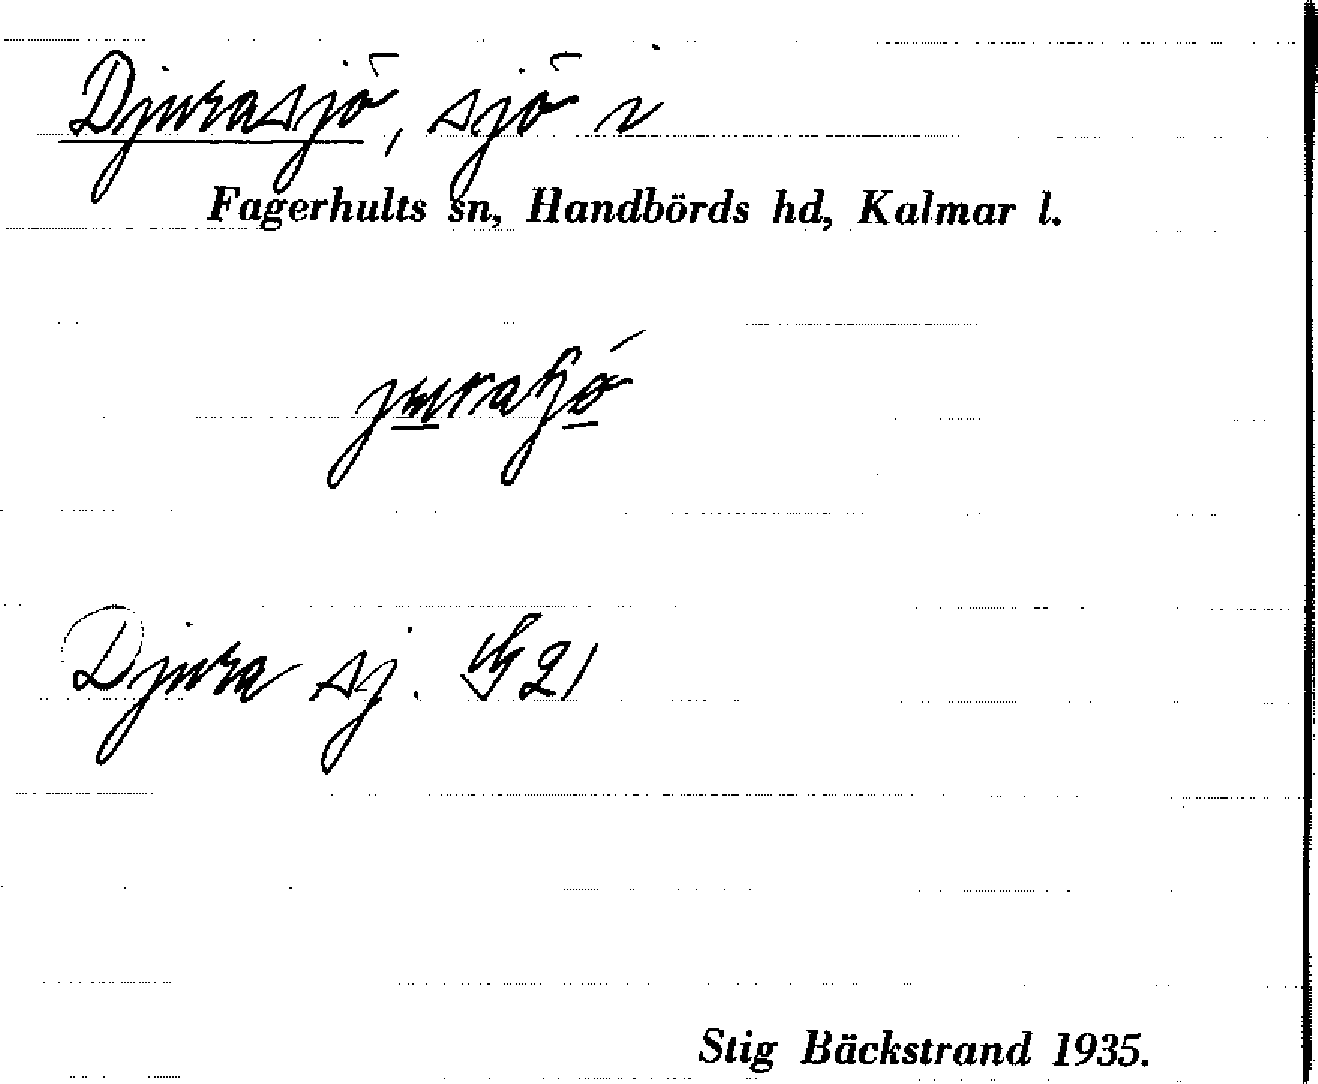 Djurasjö, sjö i
Fagerhults sn, Handbörds hd, Kalmar l.
Djura sj.
Stig Bäckstrand 1935.